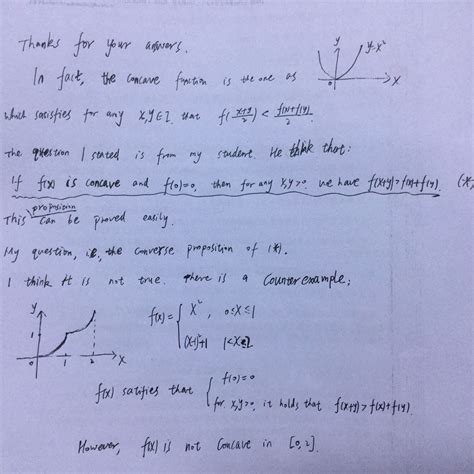 Thanks for your answers.
In fact, the concave function is the one as
y
y=x²
0
x
which satisfies for any x,y∈I that f((x+y)/2) < (f(x)+f(y))/2.
The question I stated is from my student. He think that:
If f(x) is concave and f(0)=0, then for any x,y>0, we have f(x+y)>f(x)+f(y). (*)
This proposition can be proved easily.
My question, i.e., the converse proposition of (*).
I think it is not true. There is a counterexample;
y
1
0
1
2
x
f(x)= { x², 0≤x≤1
(x-1)²+1 1<x≤2
f(x) satifies that { f(0)=0
for x,y>0, it holds that f(x+y)>f(x)+f(y)
However, f(x) is not concave in [0,2].